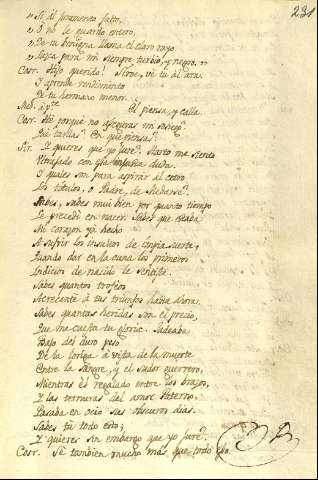 231
„ Si al juramento falto,
„ O no le guardo entero,
„ De tu benigna llama el claro rayo
„ Luzca para mi siempre turbio, y negro. „
Cosr. Hijo querido! Siroe, vé tu al ara.
Y aprende rendimiento
De tu hermano menor.
Med. à pte. El piensa, y calla
Cosr. Y porqué no aseguras mi sosiego?
Qué tardas? En qué piensas?
Sir. Y quieres que yo jure? Harto me siento
Ultrajado con esa injusta duda.
Y quales son para aspirar al cetro
Los titulos, o Padre, de Medarse?
Sabes, sabes mui bien por quanto tiempo
Le precedí en nacer. Sabes que estaba
Mi corazon yá hecho
A sufrir los insultos de impia suerte,
Quando dar en la cuna los primeros
Indicios de nacido le sentiste.
Sabes quantos trofeos
Acrecenté à tus triunfos hasta ahora.
Sabes quantas heridas son el precio,
Que me cuesta tu gloria. Sudaba
Bajo del duro peso
De la loriga à vista de la muerte
Entre la sangre, y el sudor guerrero,
Mientras él regalado entre los brazos,
Y las ternuras del amor Paterno,
Pasaba en ocio sus obscuros dias.
Sabes tu todo esto;
Y quieres sin embargo que yo jure?
Cosr. Sé tambien mucho mas que todo eso.